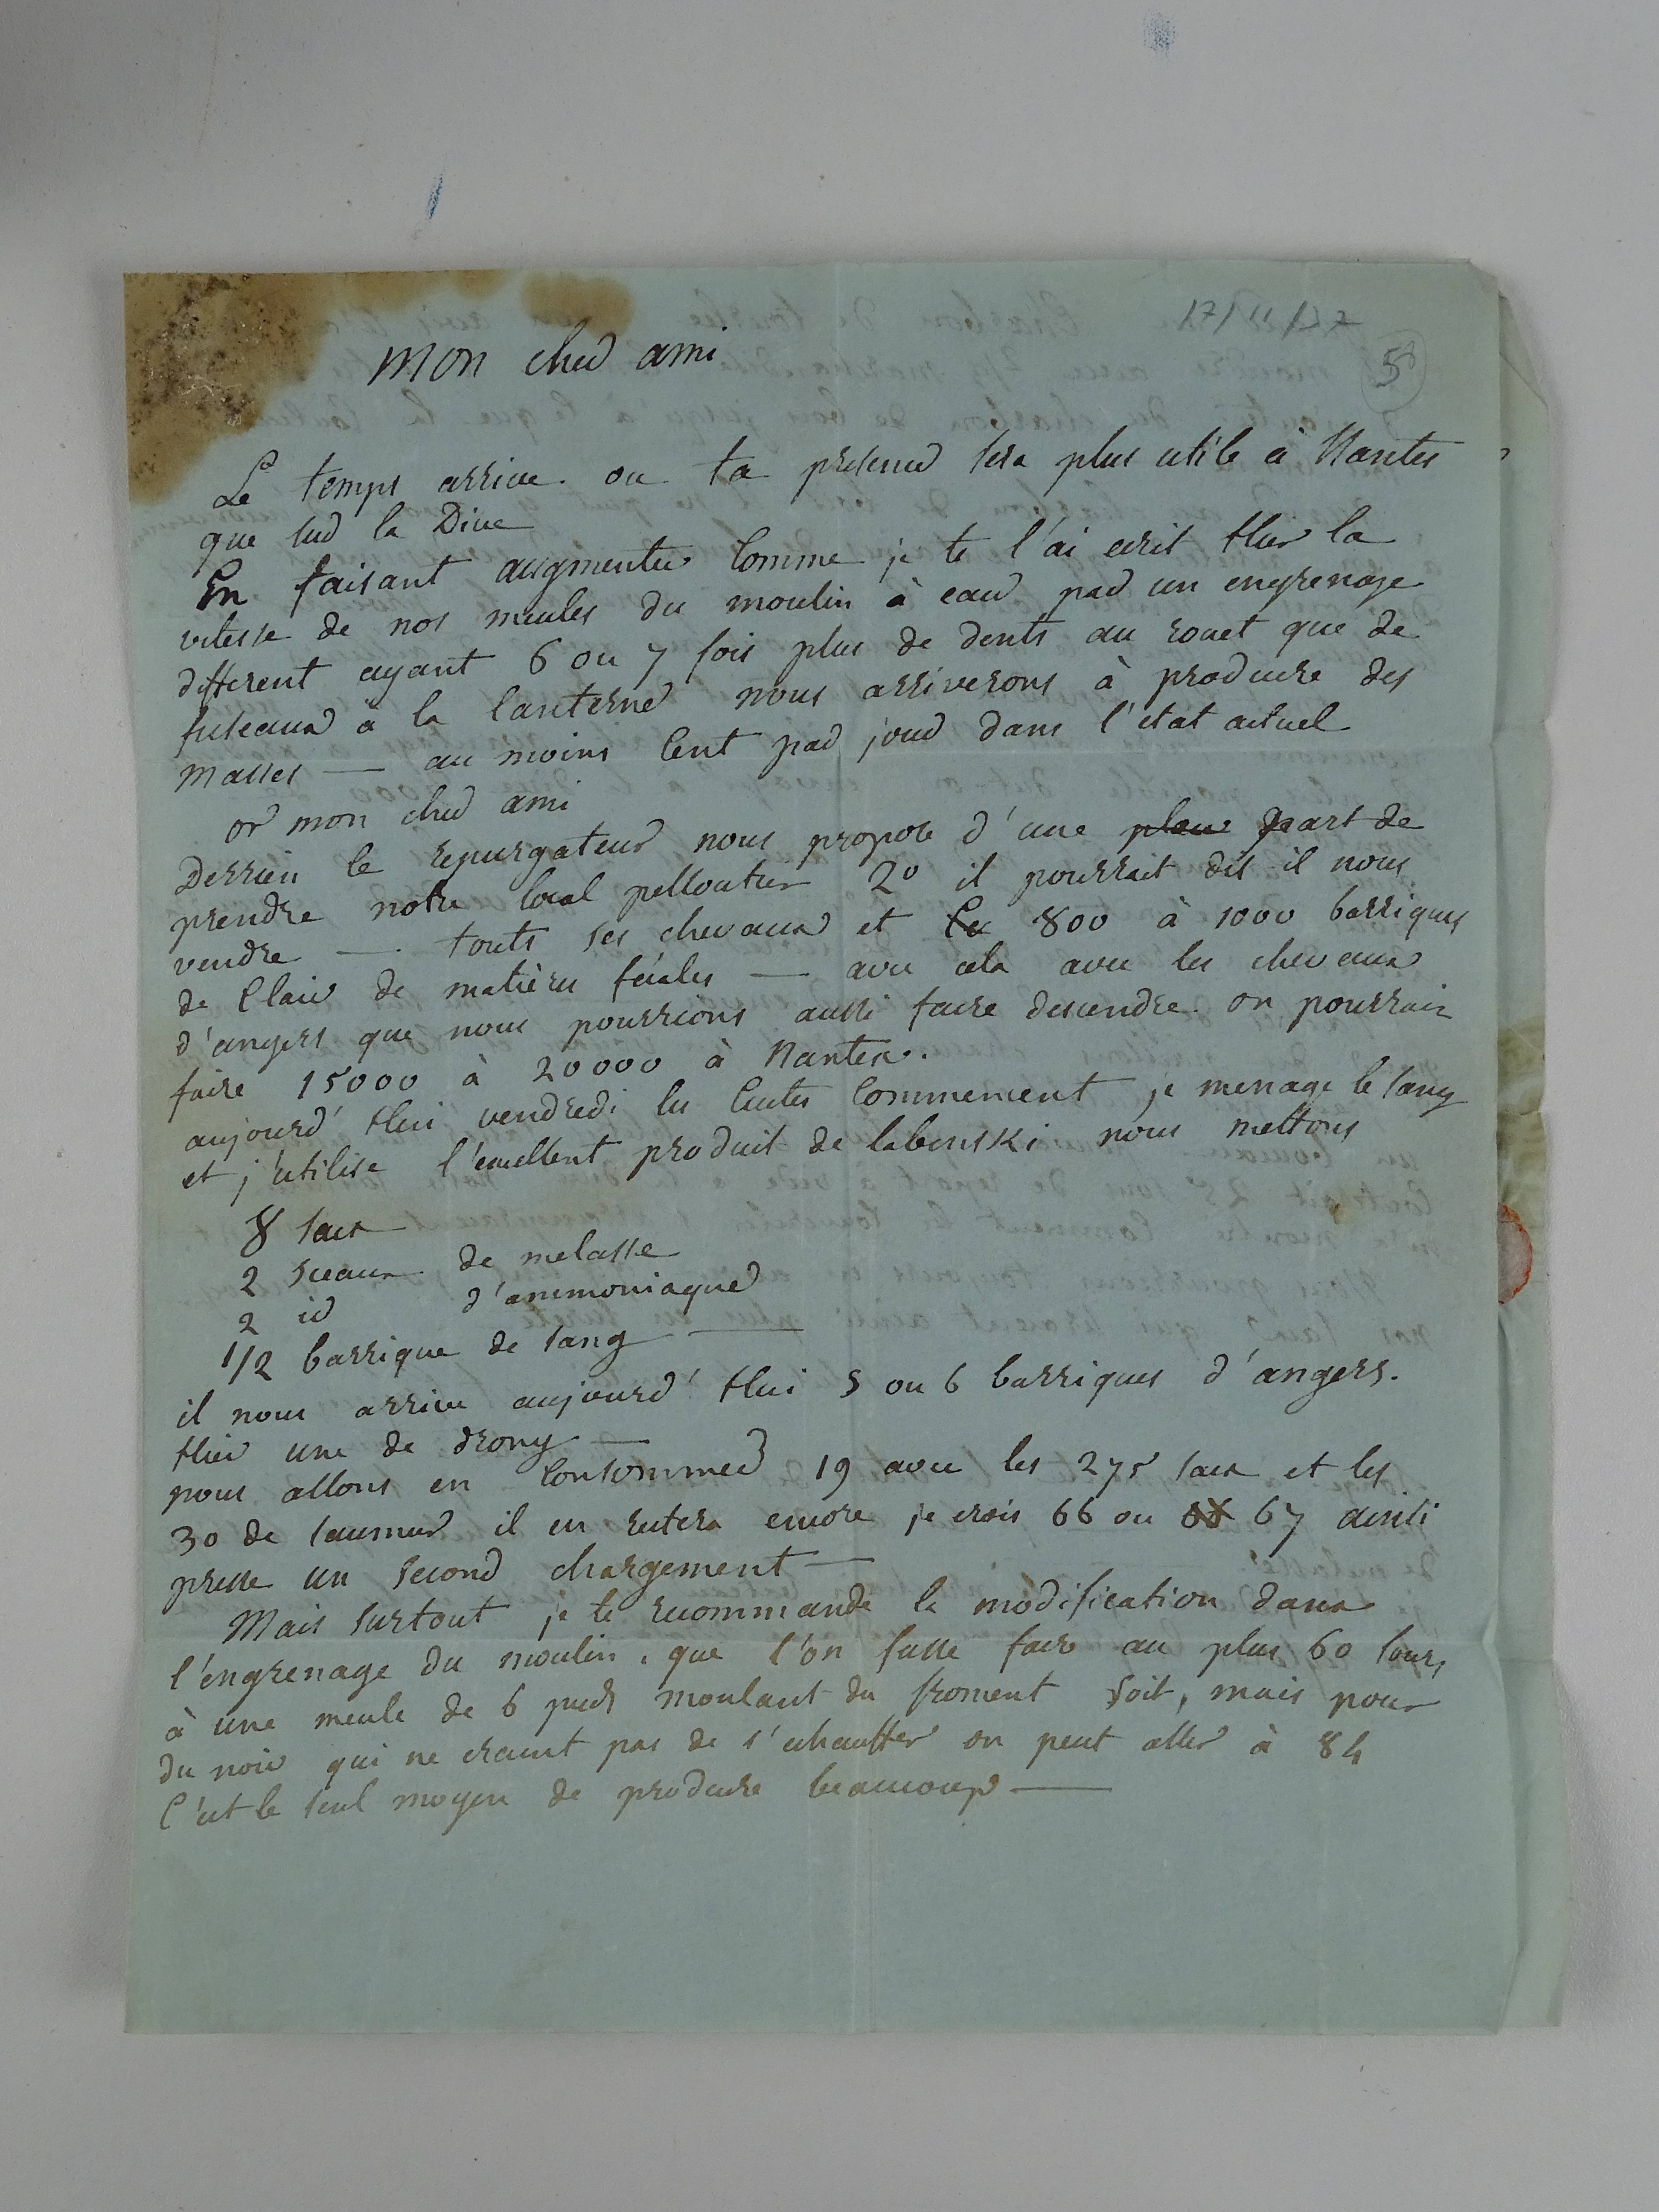 17/11/37
5
Mon cher ami
Le temps arrive ou ta presence sera plus utile à Nantes
que sur la Dive
En faisant augmenter comme je te l'ai ecrit Hier la
vitesse de nos meules du moulin à eau par un engrenage
different ayant 6 ou 7 fois plus de dents au rouet que de
fuseaux à la lanterne nous arriverons à produire des
masses — au moins Cent par jour dans l'etat actuel
or mon cher ami
Derrien le repurgateur nous propose d'une part de
prendre notre local pelloutier 2º il pourrait dit il nous
vendre — touts ses chevaux et 800 à 1000 barriques
de Clair de matières fécales — avec cela avec les chevaux
d'angers que nous pourrions aussi faire descendre on pourrait
faire 15000 à 20000 à Nantes.
aujourd'Hui vendredi les Cuites Commencent je menage le sang
et j'utilise l'excellent produit de labenski nous mettons
8 sacs
2 sceaux de melasse
2 id d'ammoniaque
1/2 barrique de sang —
il nous arrive aujourd'Hui 5 ou 6 barriques d'angers.
Hier une de drony —
nous allons en Consommer 19 avec les 275 sacs et les
30 de saumur il en restera encore je crois 66 ou 67 ainsi
presse un second chargement —
Mais surtout je te recommande la modification dans
l'engrenage du moulin. que l'on fasse faire au plus 60 tours
à une meule de 6 pieds moulant du froment soit, mais pour
du noir qui ne craint pas de s'echauffer on peut aller à 84
C'est le seul moyen de produire beaucoup —